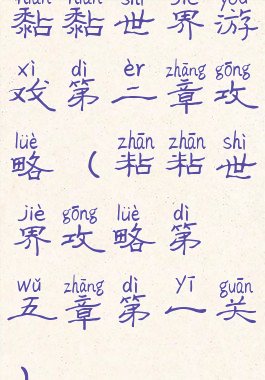 黏黏世界游
xì dì èr zhāng gōng
戏第二章攻
lüè zhān zhān shì
略（粘粘世
jiè gōng lüè dì
界攻略第
wǔ zhāng dì yī guān
五章第一关
）